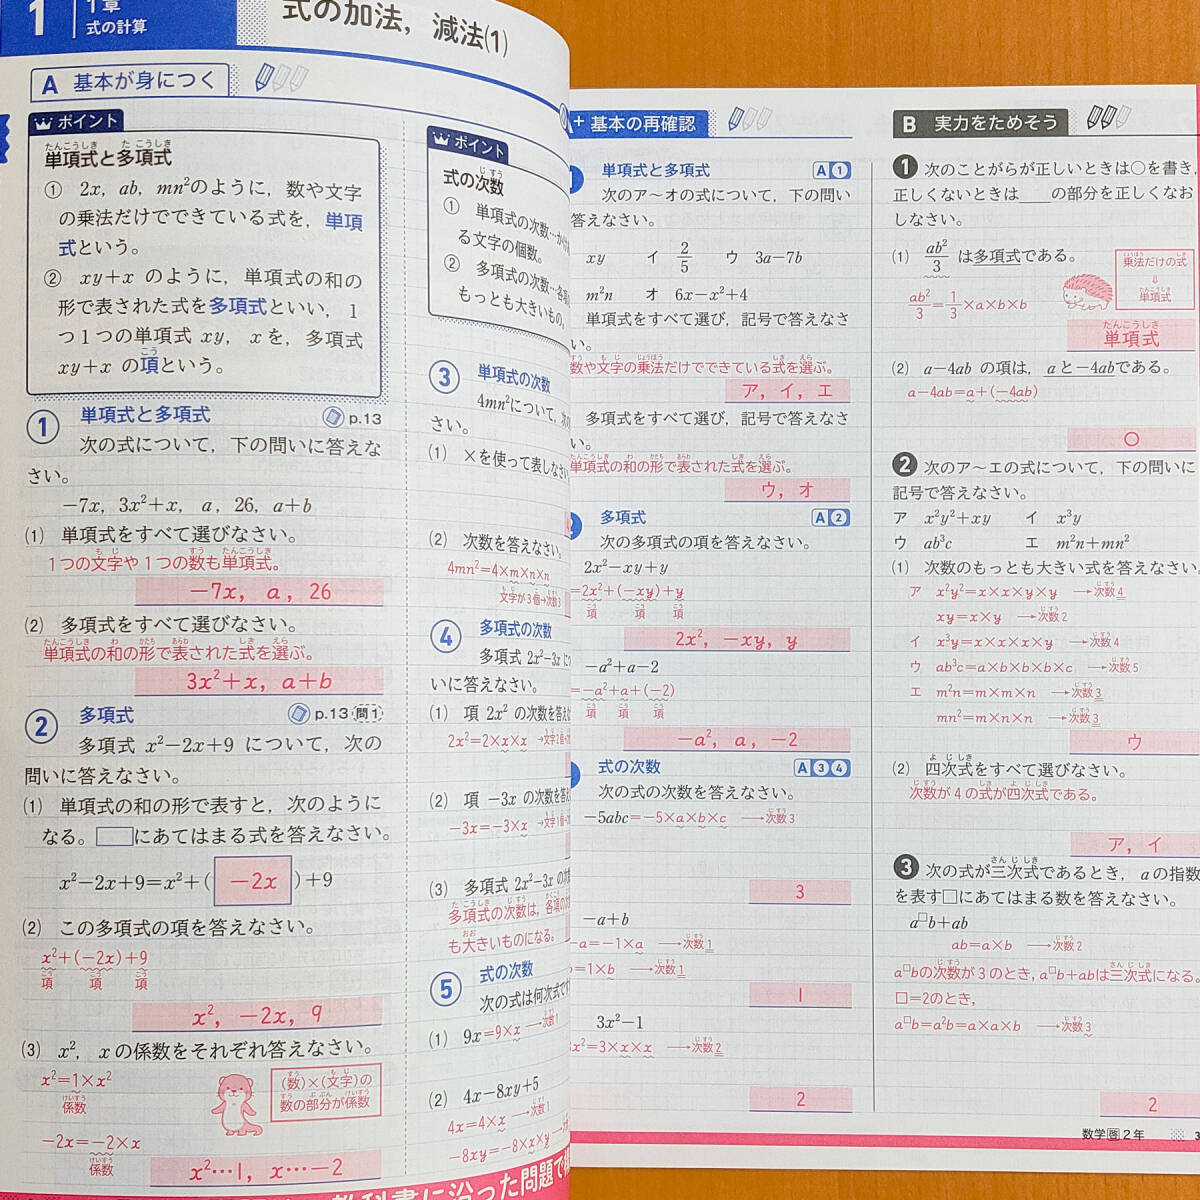 1
1章
式の計算
式の加法，減法(1)
A 基本が身につく
ポイント
単項式と多項式
① 2x，ab，mn²のように，数や文字
の乗法だけでできている式を，単項
式という。
② xy+x のように，単項式の和の
形で表された式を多項式といい，1
つ1つの単項式 xy，x を，多項式
xy+x の項という。
① 単項式と多項式 p.13
次の式について，下の問いに答えな
さい。
−7x，3x²+x，a，26，a+b
(1) 単項式をすべて選びなさい。
1つの文字や1つの数も単項式。
−7x，a，26
(2) 多項式をすべて選びなさい。
単項式の和の形で表された式を選ぶ。
3x²+x，a+b
② 多項式 p.13 問1
多項式 x²−2x+9 について，次の
問いに答えなさい。
(1) 単項式の和の形で表すと，次のように
なる。□にあてはまる式を答えなさい。
x²−2x+9=x²+(−2x)+9
(2) この多項式の項を答えなさい。
x²+(−2x)+9
項 項 項
x²，−2x，9
(3) x²，xの係数をそれぞれ答えなさい。
x²=1×x²
係数
(数)×(文字)の
数の部分が係数
−2x=−2×x
係数
x²…1，x…−2
ポイント
式の次数
① 単項式の次数…
る文字の個数。
② 多項式の次数…
もっとも大きいもの。
③ 単項式の次数
4mn²について，
さい。
(1) ×を使って表しなさい
(2) 次数を答えなさい。
4mn²=4×m×n×n
文字が3個→次数3
④ 多項式の次数
多項式 2x²−3x
いに答えなさい。
(1) 項 2x² の次数を答え
2x²=2×x×x →文字2個
(2) 項 −3x の次数を答え
−3x=−3×x →文字1個
(3) 多項式 2x²−3x の
多項式の次数は，各項の
も大きいものになる。
⑤ 式の次数
次の式は何次式で
(1) 9x=9×x →次数1
(2) 4x−8xy+5
4x=4×x →次数1
−8xy=−8×x×y
A+ 基本の再確認
単項式と多項式 A①
次のア〜オの式について，下の問い
答えなさい。
xy イ 2/5 ウ 3a−7b
m²n オ 6x−x²+4
単項式をすべて選び，記号で答えなさ
い。
数や文字の乗法だけでできている式を選ぶ。
ア，イ，エ
多項式をすべて選び，記号で答えなさ
い。
単項式の和の形で表された式を選ぶ。
ウ，オ
多項式 A②
次の多項式の項を答えなさい。
2x²−xy+y
=2x²+(−xy)+y
項 項 項
2x²，−xy，y
−a²+a−2
=−a²+a+(−2)
項 項 項
−a²，a，−2
式の次数 A③④
次の式の次数を答えなさい。
−5abc=−5×a×b×c →次数3
3
−a+b
−a=−1×a →次数1
b=1×b →次数1
1
3x²−1
3x²=3×x×x →次数2
2
B 実力をためそう
❶ 次のことがらが正しいときは○を書き，
正しくないときは＿の部分を正しくなお
しなさい。
(1) ab²/3 は多項式である。
乗法だけの式
⇓
単項式
ab²/3=1/3×a×b×b
単項式
(2) a−4ab の項は，aと−4abである。
a−4ab=a+(−4ab)
○
❷ 次のア〜エの式について，下の問いに
記号で答えなさい。
ア x²y²+xy イ x³y
ウ ab³c エ m²n+mn²
(1) 次数のもっとも大きい式を答えなさい。
ア x²y²=x×x×y×y →次数4
xy=x×y →次数2
イ x³y=x×x×x×y →次数4
ウ ab³c=a×b×b×b×c →次数5
エ m²n=m×m×n →次数3
mn²=m×n×n →次数3
ウ
(2) 四次式をすべて選びなさい。
次数が4の式が四次式である。
ア，イ
❸ 次の式が三次式であるとき，aの指数
を表す□にあてはまる数を答えなさい。
a□b+ab
ab=a×b →次数2
a□bの次数が3のとき，a□b+abは三次式になる。
□=2のとき，
a□b=a²b=a×a×b →次数3
2
数学啓2年 3
教科書に沿った問題で